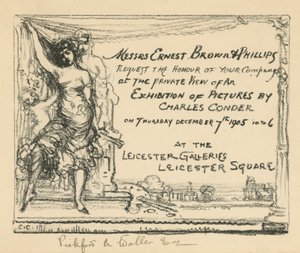 Messrs Ernest Brown & Phillips
Request the Honour of Your Company
at the Private View of An
Exhibition of Pictures by
Charles Conder
on Thursday December 7th 1905 10 to 6
at the
Leicester Galleries
Leicester Square
C.C.
Pickford Waller Esq